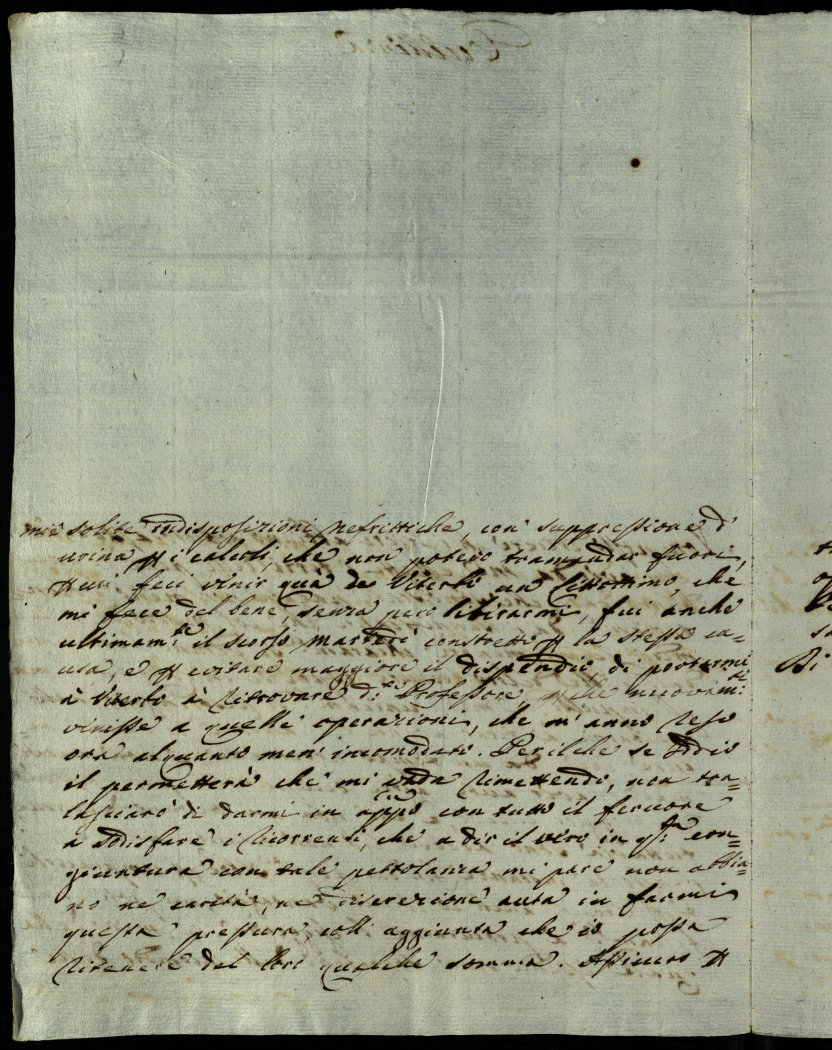 mie solite indisposizioni Nefrittiche, con suppressione d'
urina p i calcoli, che non potevo tramandar fuori,
p cui feci venir quà da Viterbo un che
mi fece del bene, senza però librarmi, fui anche
ultimam.te il scorso Martedì constretto p la stessa ca=
usa, e p evitare maggiore il dispendio, di portarmi
à Viterbo à ritrovare d.to Professore, nuovam.te
venisse a quelle operazioni, che m'anno reso
ora alquanto men incomodato. Perilche se Iddio
il permetterà che mi vada rimettendo, non tra=
lasciarò di darmi in app.o con tutto il fervore
a sodisfare i ricorrenti, che a dir il vero in q.sta con=
giuntura con tale petolanza mi pare non abbia=
no ne carità, ne discrezione auta in farmi
questa pressura, coll'aggiunta che io possa
ritenere del loro qualche somma. Assicuro p